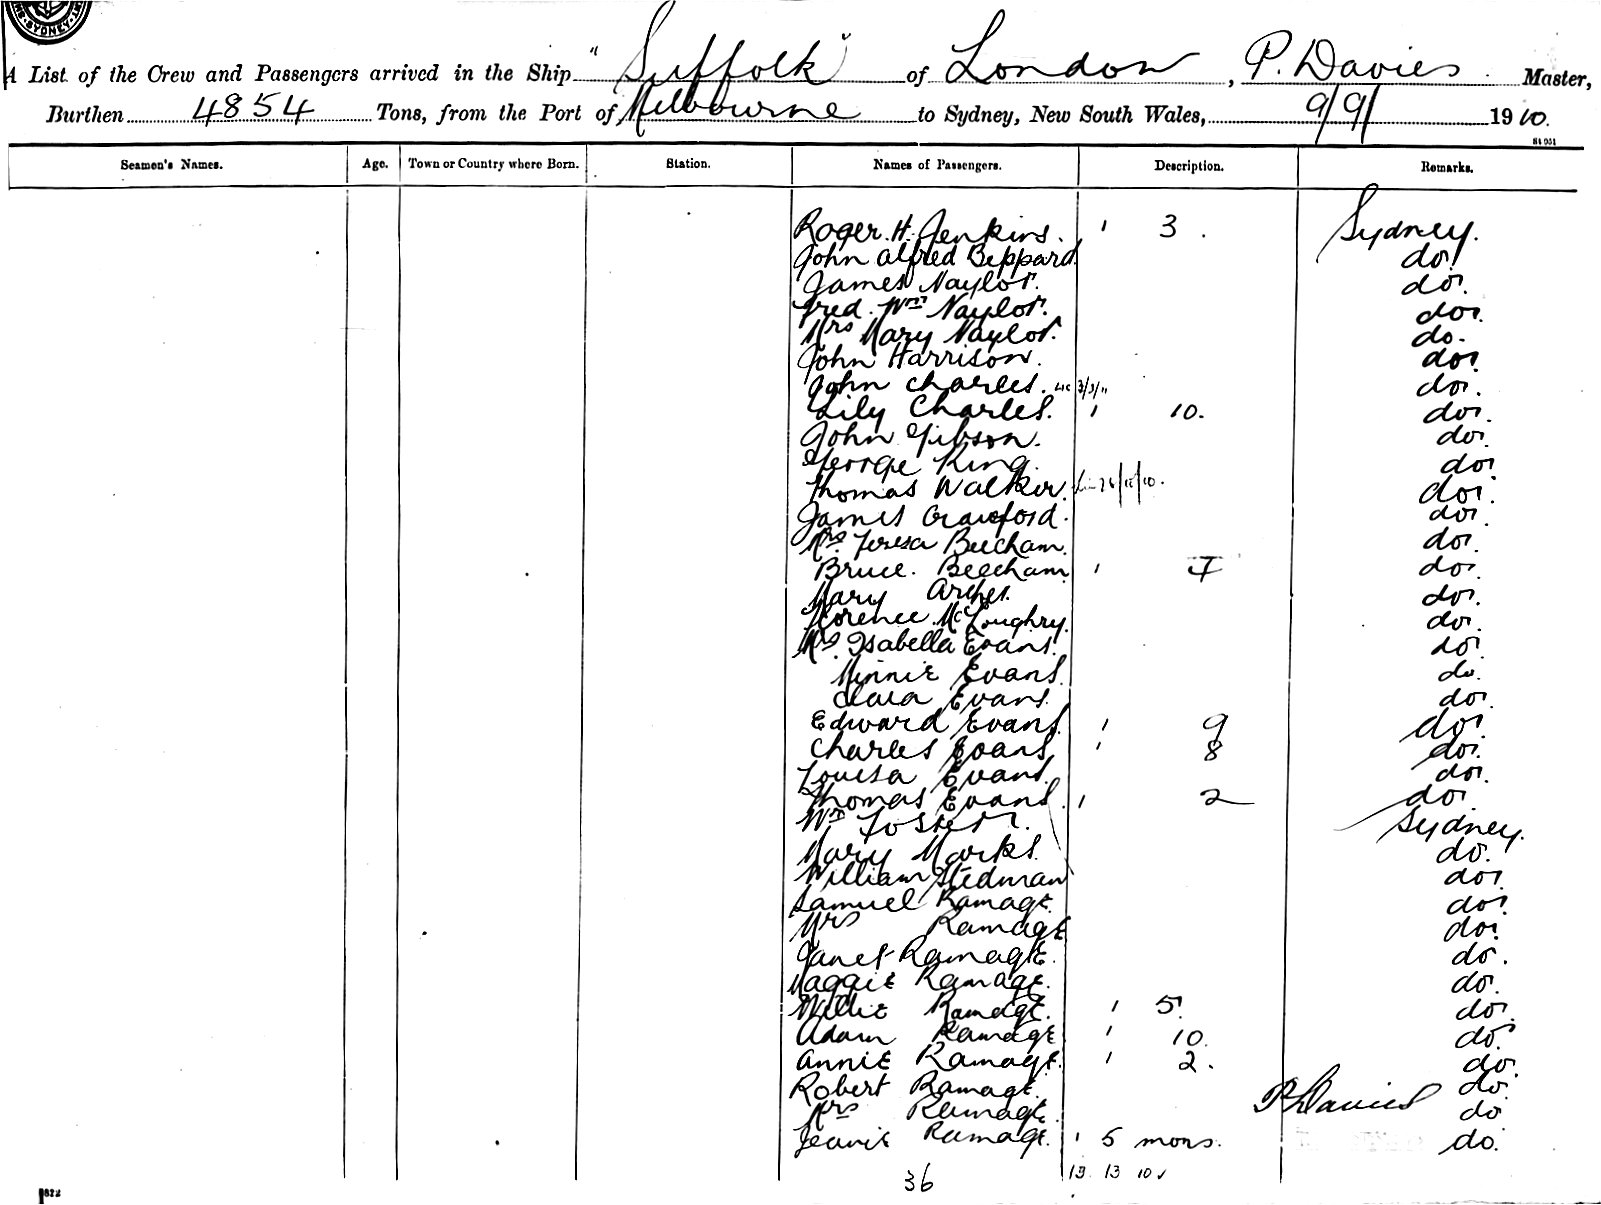 SYDNEY
A List of the Crew and Passengers arrived in the Ship "Suffolk" of London, P. Davies Master,
Burthen 4854 Tons, from the Port of Melbourne to Sydney, New South Wales, 9/9/ 1910.
Seamen's Names. Age. Town or Country where Born. Station. Names of Passengers. Description. Remarks.
Roger. H. Jenkins. 1 3. Sydney.
John Alfred Beppard do.
James Naylor. do.
Fred. Wm Naylor. do.
Mrs Mary Naylor. do.
John Harrison. do.
John Charles. 3/3/11 do.
Lily Charles. 1 10. do.
John Gibson. do.
George King. do.
Thomas Walker. do.
James Crawford. do.
Mrs. Teresa Beecham. do.
Bruce. Beecham 1 7 do.
Mary Archer. do.
Florence McLoughry. do.
Mrs. Isabella Evans. do.
Minnie Evans. do.
Clara Evans. do.
Edward Evans 1 9 do.
Charles Evans 1 8 do.
Louisa Evans. do.
Thomas Evans 1 2 do.
Wm Foster. Sydney.
Mary Marks. do.
William Stedman do.
Samuel Ramage. do.
Mrs Ramage do.
Janet Ramage. do.
Maggie Ramage. do.
Willie Ramage. 1 5. do.
Adam Ramage 1 10. do.
Annie Ramage. 1 2. do.
Robert Ramage. do.
Mrs Ramage. P. Davies do
Jeanie Ramage. 1 5 mons. do.
36 13 10